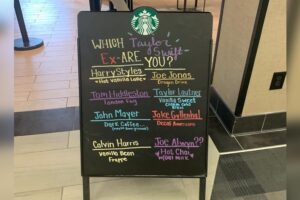 WHICH Taylor Swift
Ex- ARE YOU?
Harry Styles
Hot Vanilla Latte
Joe Jonas
Dragon Drink
Tom Hiddleston
London Fog
Taylor Lautner
Vanilla Sweet
Cream Cold
Brew
John Mayer
Dark Coffee...
Jake Gyllenhal
Decaf Americano
Calvin Harris
Vanilla Bean
Frappe
Joe Alwyn??
Hot Chai